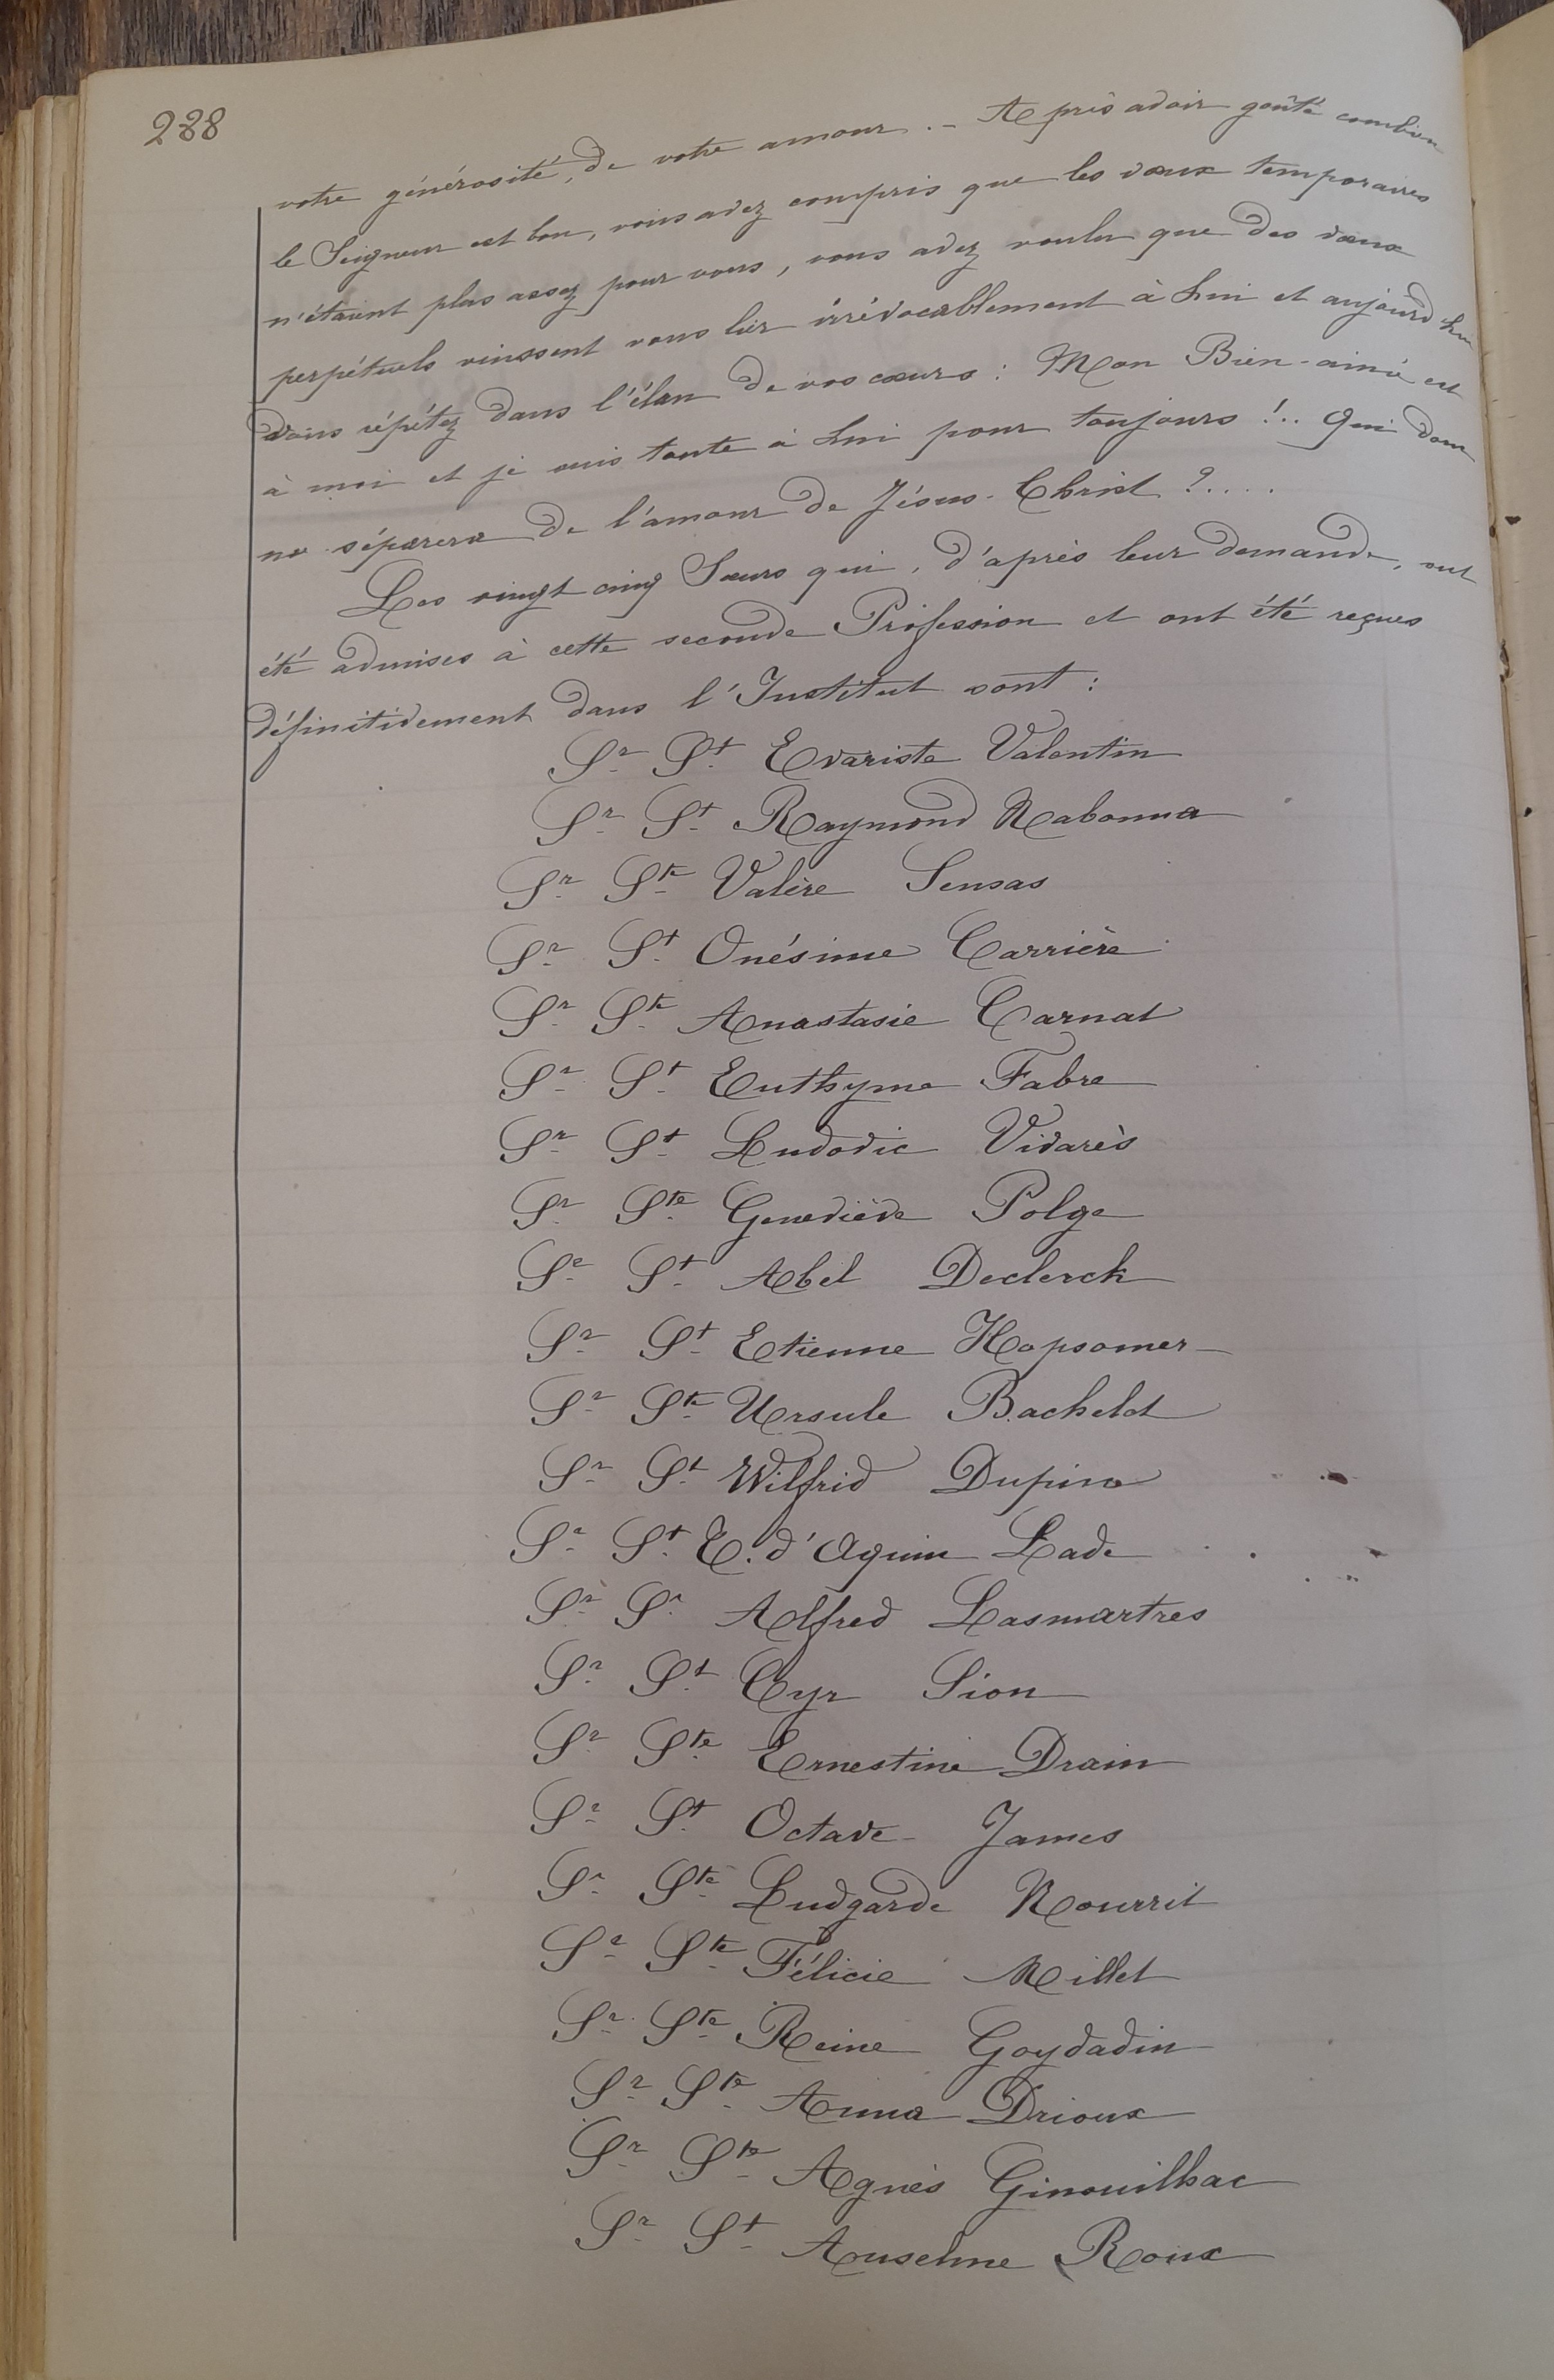 288
votre générosité, de votre amour. — Après avoir goûté combien
le Seigneur est bon, vous avez compris que les vœux temporaires
n'étaient plus assez pour vous, vous avez voulu que des vœux
perpétuels vinssent vous lier irrévocablement à Lui et aujourd'hui
vous répétez dans l'élan de vos cœurs : Mon Bien-aimé est
à moi et je suis toute à Lui pour toujours !.. Qui donc
me séparera de l'amour de Jésus-Christ ?....
Les vingt cinq Sœurs qui, d'après leur demande, ont
été admises à cette seconde Profession et ont été reçues
définitivement dans l'Institut sont :
Sr St Evariste Valentin
Sr St Raymond Nabonna
Sr Ste Valère Sensas
Sr St Onésime Carrière
Sr Ste Anastasie Carnat
Sr St Euthyme Fabre
Sr St Ludovic Vidarès
Sr Ste Geneviève Polge
Sr St Abel Declerck
Sr St Etienne Hapsomer
Sr Ste Ursule Bachelot
Sr St Wilfrid Dupin
Sr St E. d'Aquin Lade
Sr St Alfred Lasmartres
Sr St Cyr Sion
Sr Ste Ernestine Drain
Sr St Octave James
Sr Ste Ludgarde Nourrit
Sr Ste Félicie Millet
Sr Ste Reine Goyvadin
Sr Ste Anna Drioux
Sr Ste Agnès Ginouilhac
Sr St Anselme Roux